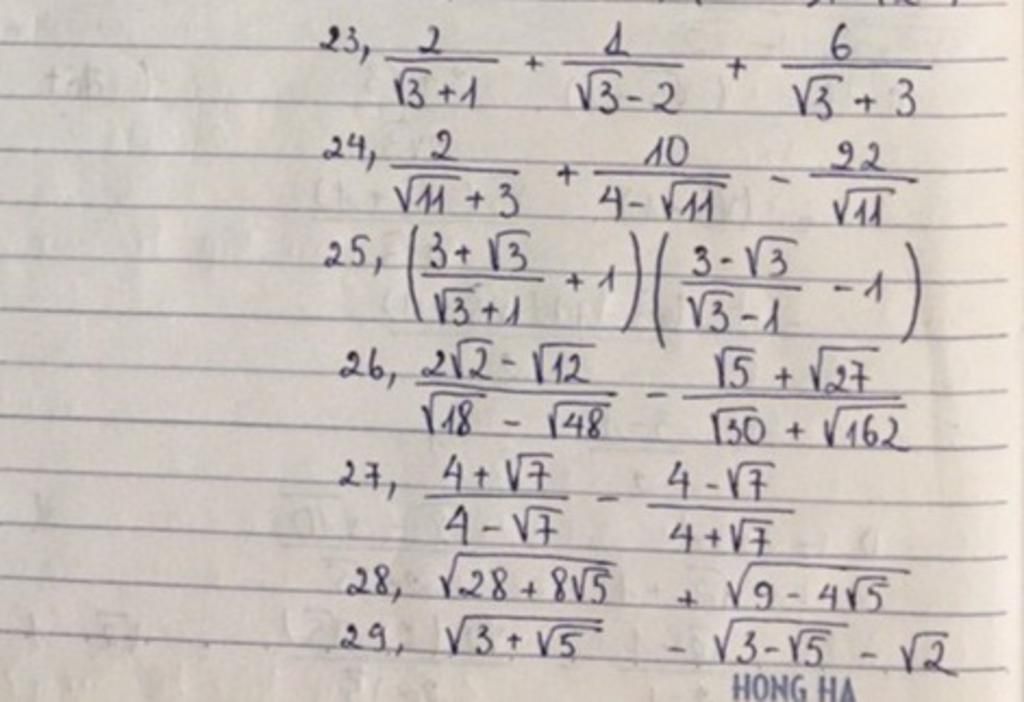 23, 2/(√3 + 1) + 1/(√3 - 2) + 6/(√3 + 3)
24, 2/(√11 + 3) + 10/(4 - √11) - 22/√11
25, ((3 + √3)/(√3 + 1) + 1)((3 - √3)/(√3 - 1) - 1)
26, (2√2 - √12)/(√18 - √48) - (√5 + √27)/(√30 + √162)
27, (4 + √7)/(4 - √7) - (4 - √7)/(4 + √7)
28, √(28 + 8√5) + √(9 - 4√5)
29, √(3 + √5) - √(3 - √5) - √2
HONG HA